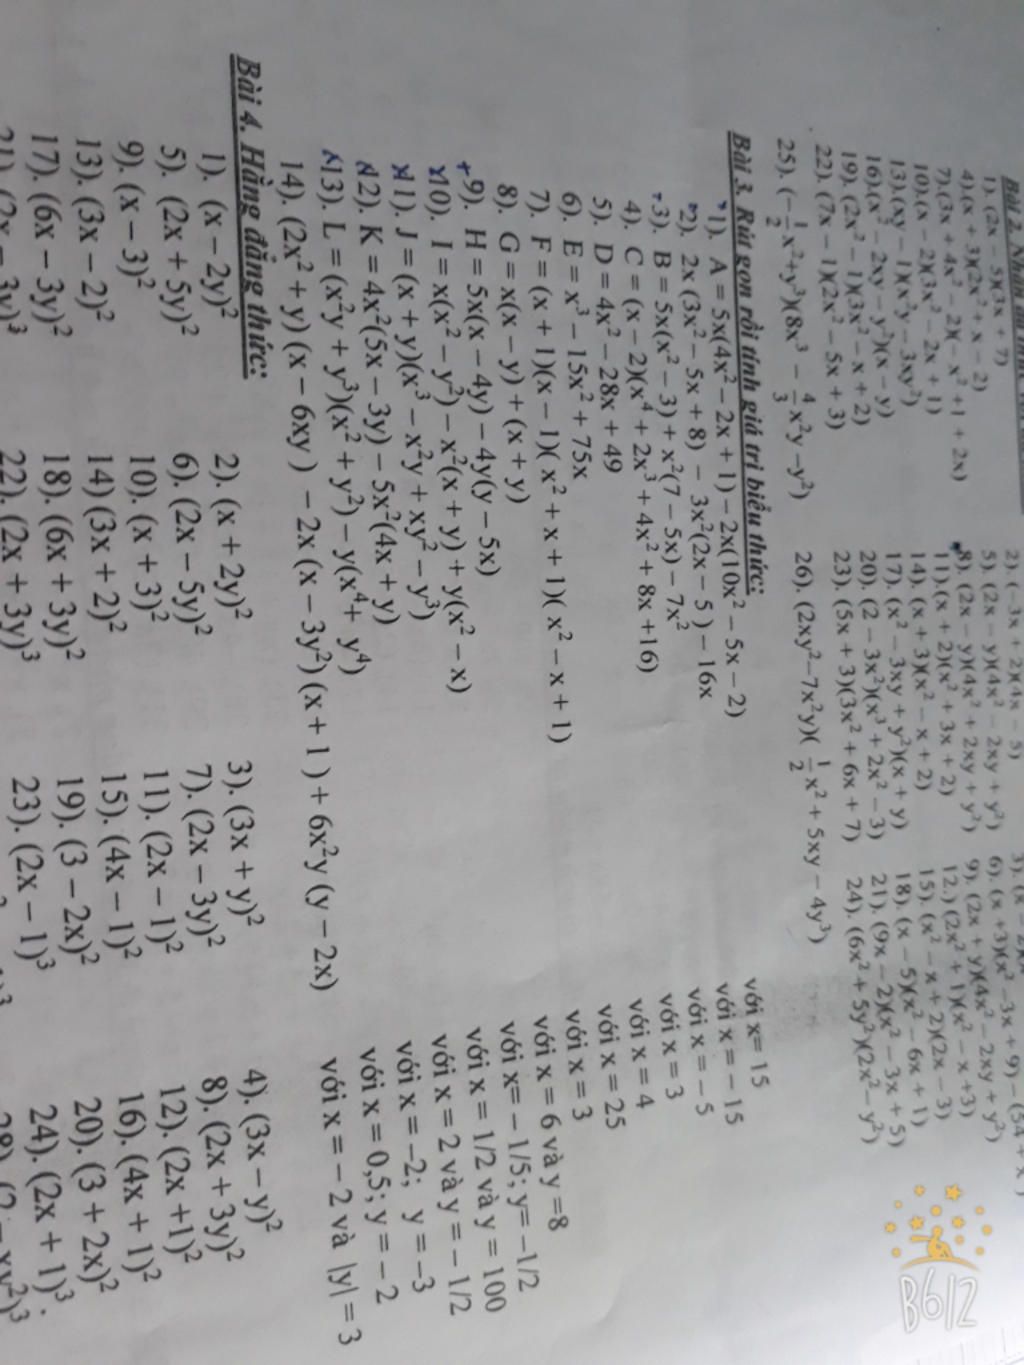 Bài 2.
1). (2x − 5)(3x + 7) 2). (−3x + 2)(4x − 5) 3). (x −
4).(x + 3)(2x² + x − 2) 5). (2x − y)(4x² − 2xy + y²) 6). (x +3)(x² −3x + 9) − (54 + x
7).(3x + 4x² − 2)(−x² +1 + 2x) 8). (2x − y)(4x² + 2xy + y²) 9). (2x + y)(4x² − 2xy + y²)
10).(x − 2)(3x² − 2x + 1) 11).(x + 2)(x² + 3x + 2) 12.) (2x² + 1)(x² − x +3)
13).(xy − 1)(x²y − 3xy²) 14). (x + 3)(x² − x + 2) 15). (x² − x + 2)(2x − 3)
16).(x² − 2xy − y²)(x − y) 17). (x² − 3xy + y²)(x + y) 18). (x − 5)(x² − 6x + 1)
19). (2x² − 1)(3x² − x + 2) 20). (2 − 3x²)(x³ + 2x² − 3) 21). (9x − 2)(x² − 3x + 5)
22). (7x − 1)(2x² − 5x + 3) 23). (5x + 3)(3x² + 6x + 7) 24). (6x² + 5y²)(2x² − y²)
25). (−1/2x²+y³)(8x³ − 4/3x²y −y²) 26). (2xy²−7x²y)(1/2x² + 5xy − 4y³)
Bài 3. Rút gọn rồi tính giá trị biểu thức:
1). A = 5x(4x² − 2x + 1) − 2x(10x² − 5x − 2) với x= 15
2). 2x (3x² − 5x + 8) − 3x²(2x − 5) − 16x với x = − 15
3). B = 5x(x² − 3) + x²(7 − 5x) − 7x² với x = − 5
4). C = (x − 2)(x⁴ + 2x³ + 4x² + 8x +16) với x = 3
5). D = 4x² − 28x + 49 với x = 4
6). E = x³ − 15x² + 75x với x = 25
7). F = (x + 1)(x − 1)( x² + x + 1)( x² − x + 1) với x = 3
8). G = x(x − y) + (x + y) với x = 6 và y =8
9). H = 5x(x − 4y) − 4y(y − 5x) với x= − 1/5; y= −1/2
10). I = x(x² − y²) − x²(x + y) + y(x² − x) với x = 1/2 và y = 100
11). J = (x + y)(x³ − x²y + xy² − y³) với x = 2 và y = − 1/2
12). K = 4x²(5x − 3y) − 5x²(4x + y) với x = −2; y = −3
13). L = (x²y + y³)(x² + y²) − y(x⁴+ y⁴) với x = 0,5; y = − 2
14). (2x² + y) (x − 6xy ) − 2x (x − 3y²) (x + 1 ) + 6x²y (y − 2x) với x = − 2 và |y| = 3
Bài 4. Hằng đẳng thức:
1). (x − 2y)² 2). (x + 2y)² 3). (3x + y)² 4). (3x − y)²
5). (2x + 5y)² 6). (2x − 5y)² 7). (2x − 3y)² 8). (2x + 3y)²
9). (x − 3)² 10). (x + 3)² 11). (2x − 1)² 12). (2x +1)²
13). (3x − 2)² 14) (3x + 2)² 15). (4x − 1)² 16). (4x + 1)²
17). (6x − 3y)² 18). (6x + 3y)² 19). (3 − 2x)² 20). (3 + 2x)²
21). (2x − 3y)³ 22). (2x + 3y)³ 23). (2x − 1)³ 24). (2x + 1)³.
B612